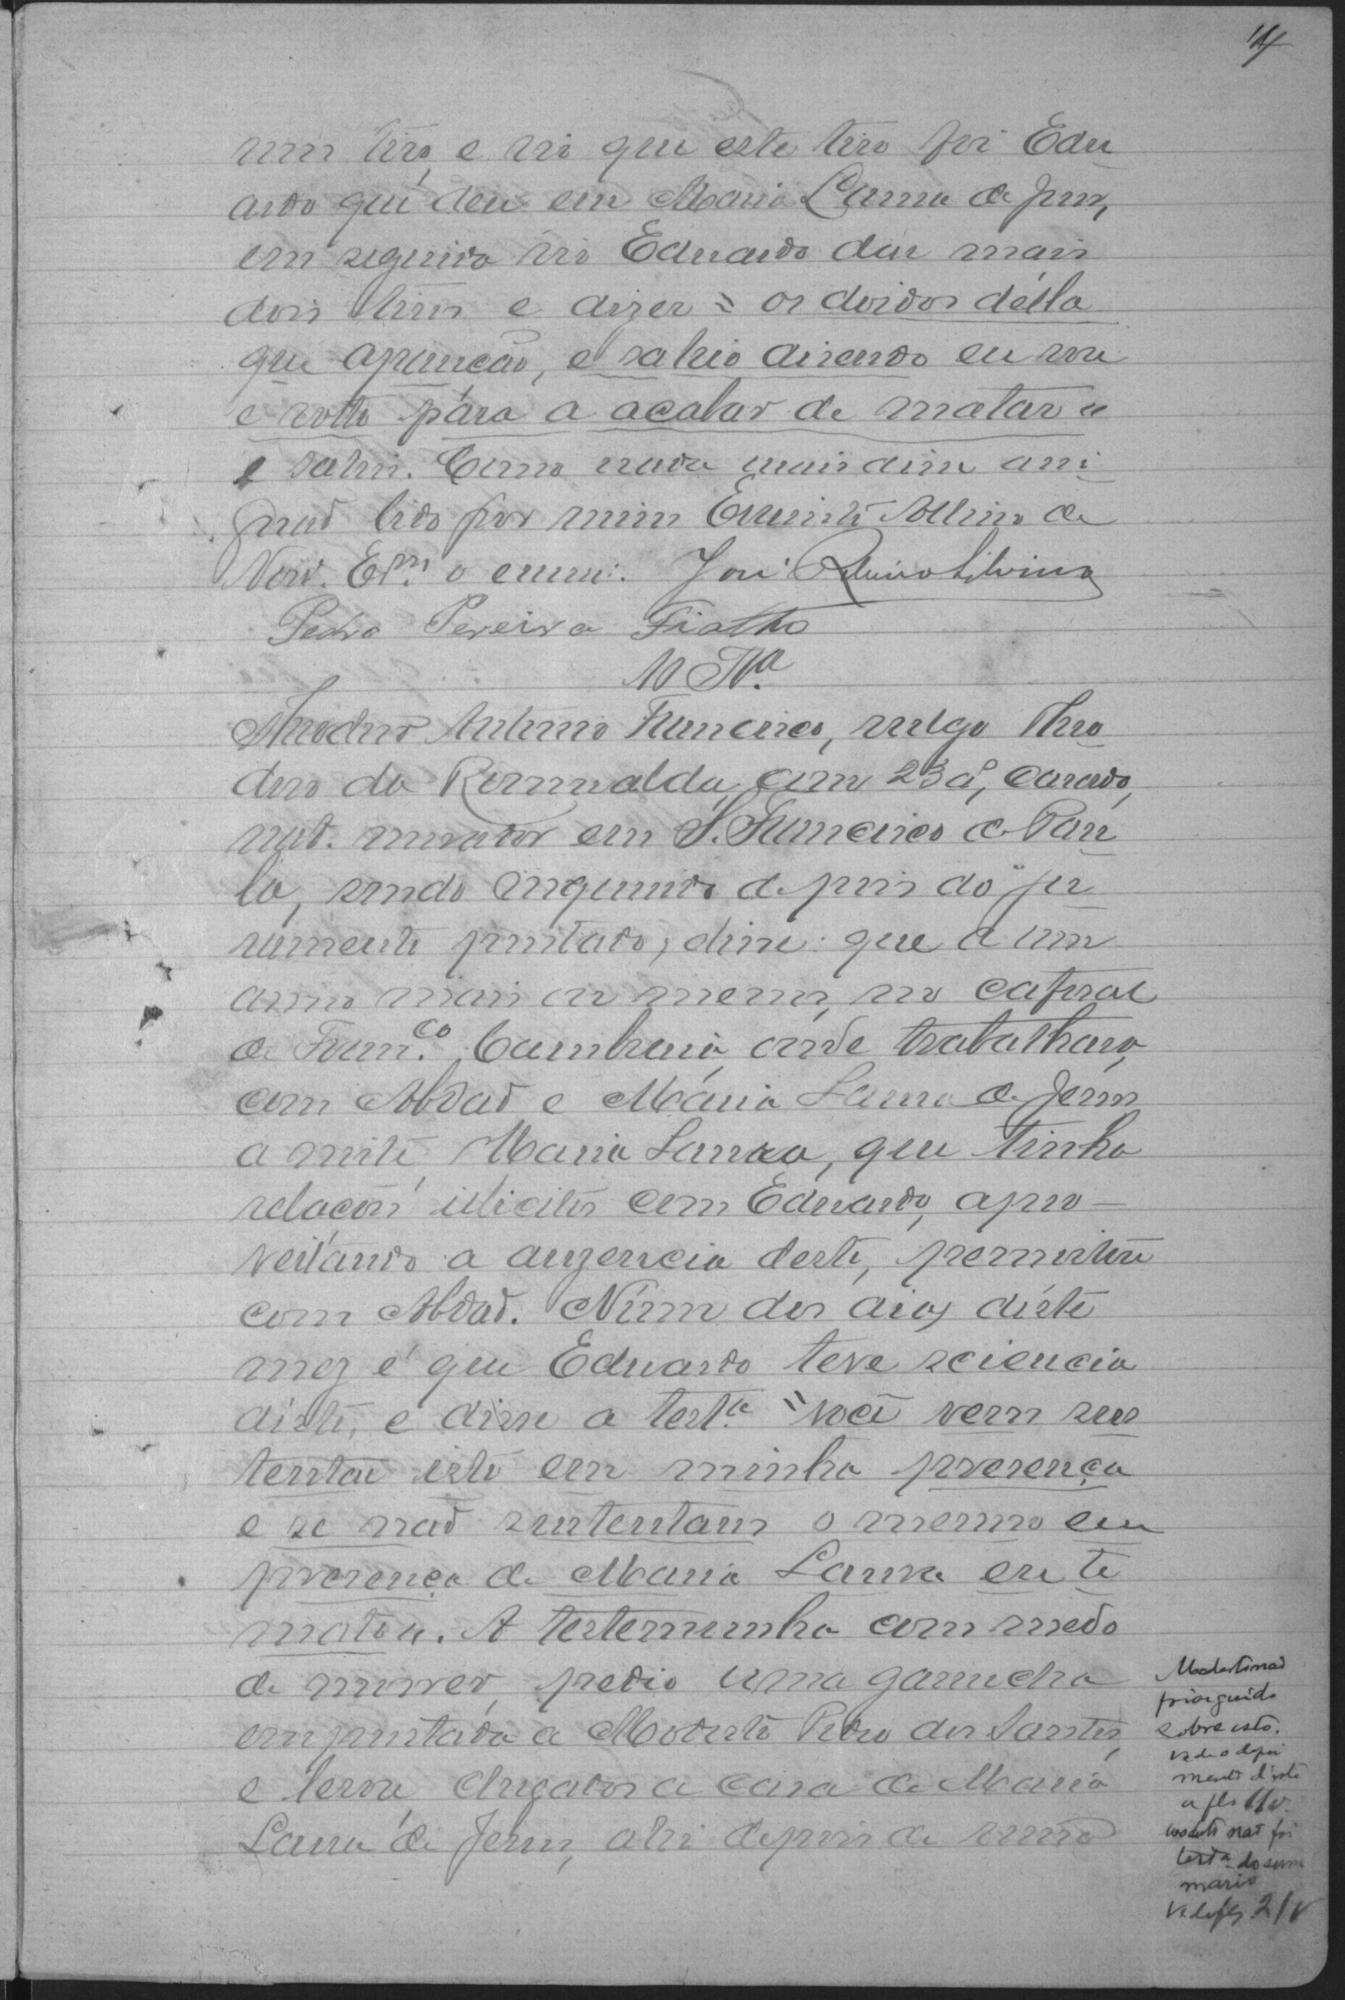 14
um tiro, e vio que este tiro foi Edu
ardo que deu em Maria Laura de Jesus,
em seguida vio Eduardo dar mais
dois tiros e dizer = os doidos della
que apareção, e sahio disendo eu vou
e volto pára a acabar de matar e
e sahio. Como nada mais disse assi
gnad lido por mim Albino de
Nov. Esm. o escrevi. José Silvino
Pedro Pereira Fialho
Theodoro Antonio Francisco, vulgo Theo
doro da Romualda, com 23 aº, casado,
nat. morador em S. Francisco de Pau
la, sendo inquerido depois do ju
ramento prestado, disse: que a um
anno mais ou menos, no cafesal
de Franco. Cambraia, onde trabalhava,
com Abdad e Maria Laura de Jesus
a noite Maria Laura, que tinha
relações illicitas com Eduardo, apro-
veitando a auzencia deste, pernoitou
com Abdad. N'um dos dias deste
mez é que Eduardo teve sciencia
disto, e disse a testa. "você vem sus
tentar isto em minha presença
e se nad sustentar o mesmo em
presença de Maria Laura eu te
mato". A testemunha com medo
de morrer, pedio uma garrucha
emprestada a Modesto Pedro dos Santos,
e levou chegados a casa de Maria
Laura de Jesus, ahi depois de
Modesto nad
foi arguido
sobre isto.
Vede o depoi
mento d'este
a fls 11v.
Modesto nad foi
testa do sum
mario
Vide fls. 21v